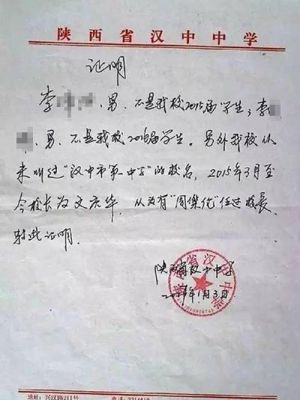 陕西省汉中中学
证明
李 、男、不是我校2015届学生；李
、男、不是我校2016届学生。另外我校从
来叫过"汉中市第一中学"的校名，2015年3月至
今校长为文庆华，从为有"周伟优"任过校长，
特此证明。
陕西省汉中中学
年1月3日
陕西省汉中中学